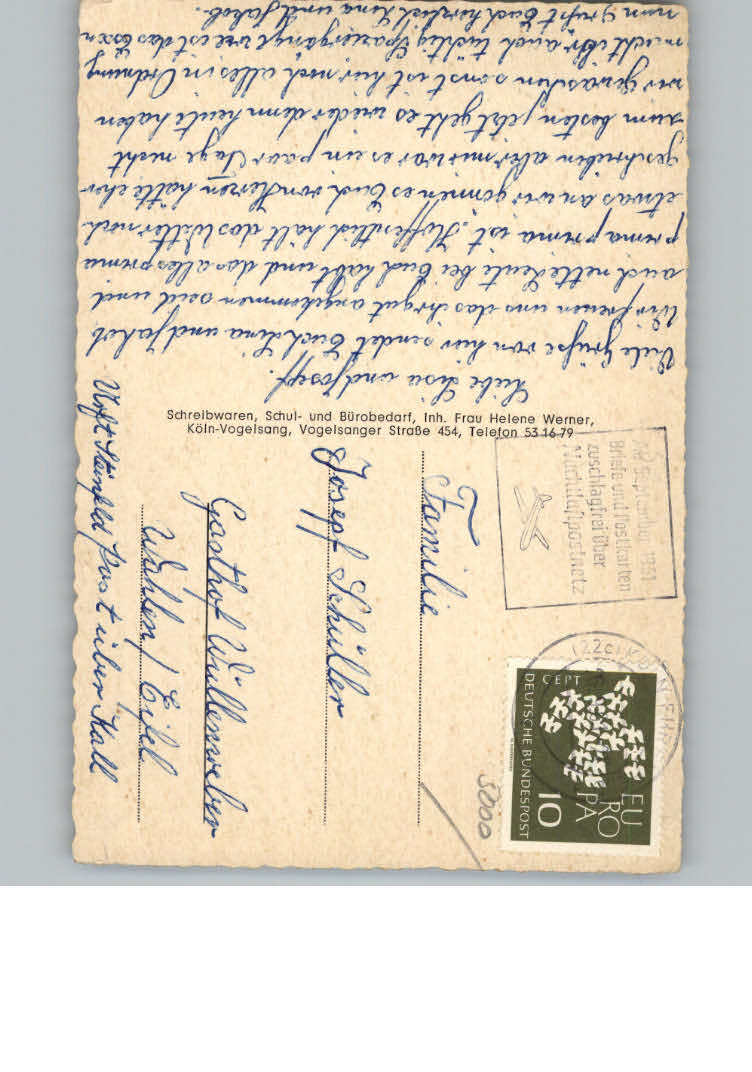 Liebe Lisa und Josef.
Viele Grüße von hier sendet Euch Lina und Jakob
Wir freuen uns das ihr gut angekommen seid und
auch nette Leute bei Euch habt und das alles prima
prima ist. Hoffentlich hält das Wetter noch
etwas an wir gönnen es Euch von Herzen hätte eher
geschrieben aber mir war es ein paar Tage nicht
zum besten jetzt geht es wieder denn heute haben
wir gewaschen sonst ist hier noch alles in Ordnung
macht ihr auch tüchtig Spaziergänge wie ist das Essen
nun grüßt Euch herzlich Lina und Jakob.
Schreibwaren, Schul- und Bürobedarf, Inh. Frau Helene Werner,
Köln-Vogelsang, Vogelsanger Straße 454, Telefon 53 16 79
September 1961
Briefe und Postkarten
zuschlagfrei über
Nachtluftpostnetz
(22c) KÖLN
CEPT
EUROPA
DEUTSCHE BUNDESPOST
10
5000
Familie
Josef Schüller
Gasthof Wüllenweber
Wahlen / Eifel
Urft Steinfeld Post über Kall